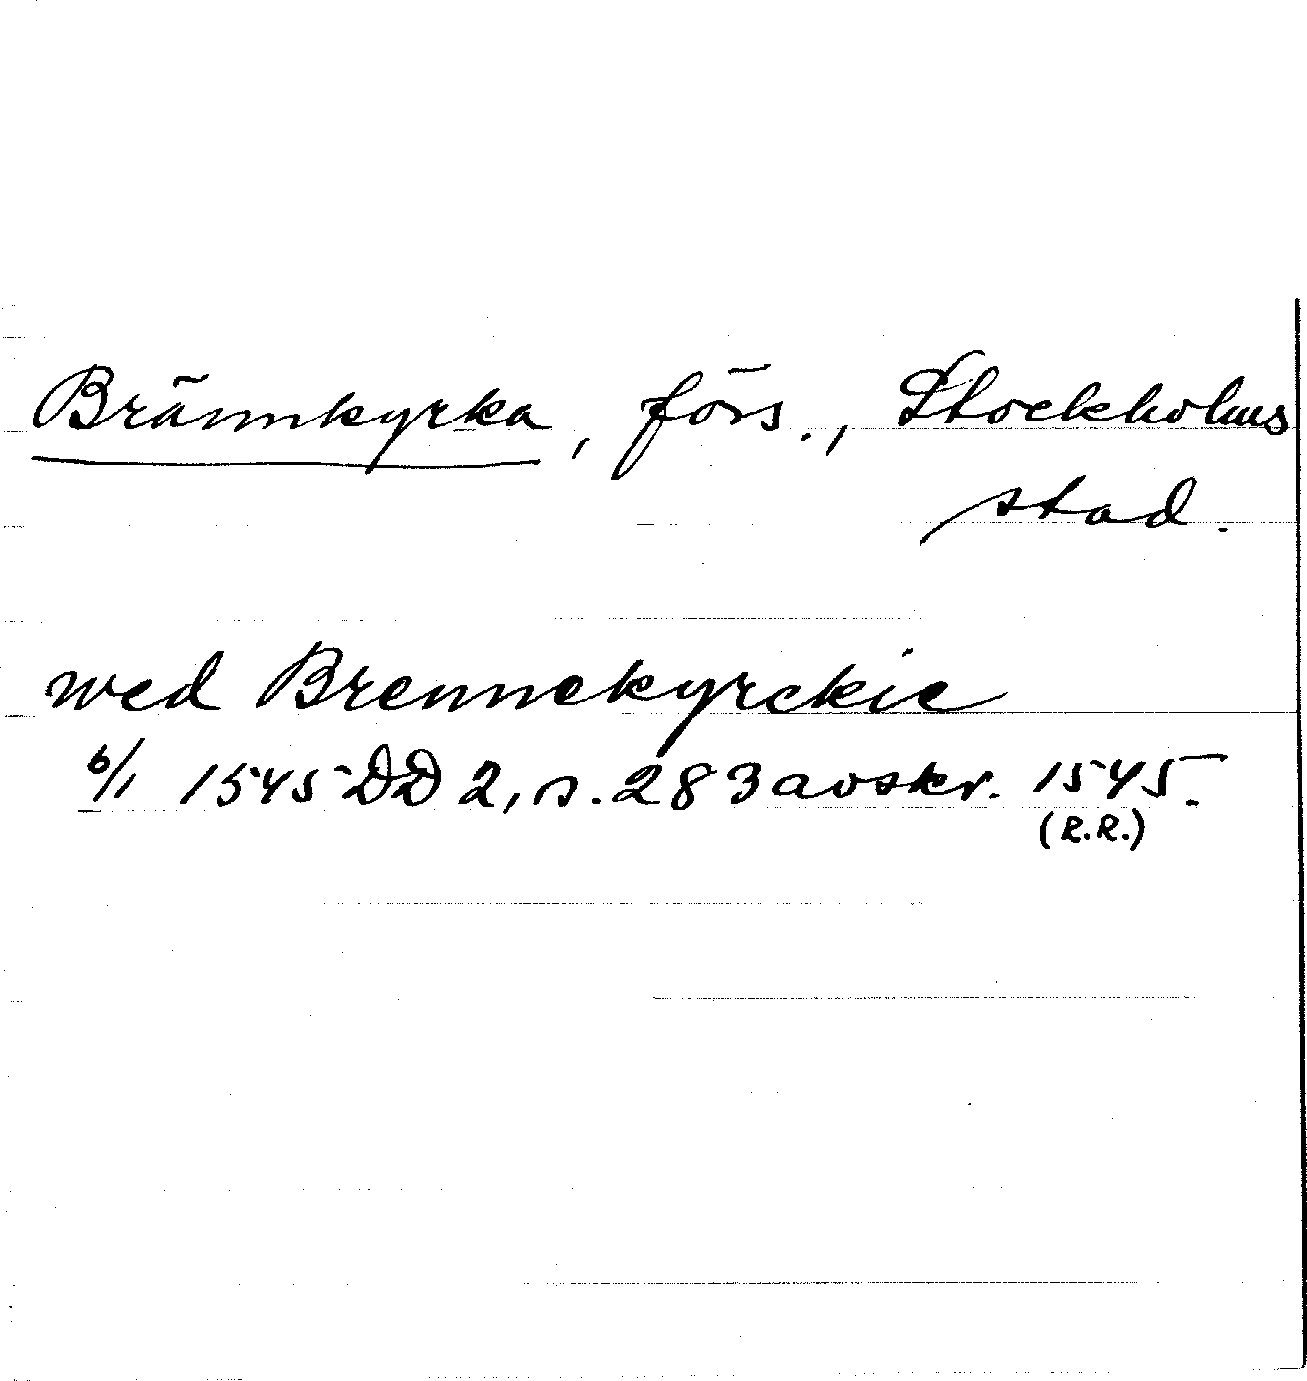 Brännkyrka, förs., Stockholms
stad.
wed Brennekyrckie
6/1 1545 DD 2, s. 283 avskr. 1545.
(R.R.)